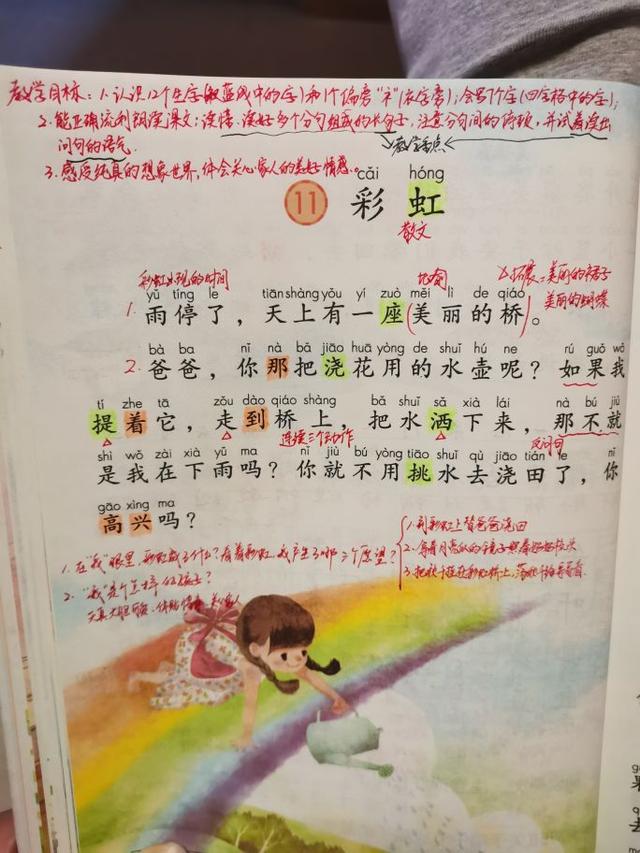 教学目标：1.认识12个生字(双蓝线中的字)和1个偏旁"礻"(示字旁)；会写7个字(田字格中的字)；
2.能正确流利朗读课文；读懂、读好多个分句组成的长句子，注意分句间的停顿，并试着读出
问句的语气。 →教学重点←
3.感受纯真的想象世界，体会关心家人的美好情感。
cǎi hóng
11 彩虹
散文
彩虹出现的时间 比喻 拓展：美丽的裙子
美丽的蝴蝶
yǔ tíng le tiān shàng yǒu yí zuò měi lì de qiáo
1.雨停了，天上有一座(美丽的桥)。
bà ba nǐ nà bǎ jiāo huā yòng de shuǐ hú ne rú guǒ wǒ
2.爸爸，你那把浇花用的水壶呢？如果我
tí zhe tā zǒu dào qiáo shàng bǎ shuǐ sǎ xià lái nà bú jiù
提着它，走到桥上，把水洒下来，那不就
连续三个动作 反问句
shì wǒ zài xià yǔ ma nǐ jiù bú yòng tiāo shuǐ qù jiāo tián le nǐ
是我在下雨吗？你就不用挑水去浇田了，你
gāo xìng ma
高兴吗？
1.在"我"眼里，彩虹成了什么？看着彩虹，我产生了哪三个愿望？
1.到彩虹上替爸爸浇田
2.拿着月亮似的镜子照着妈妈梳头
3.把秋千挂在彩虹桥上，荡秋千给哥哥看
2."我"是个怎样的孩子？
天真大胆
gē